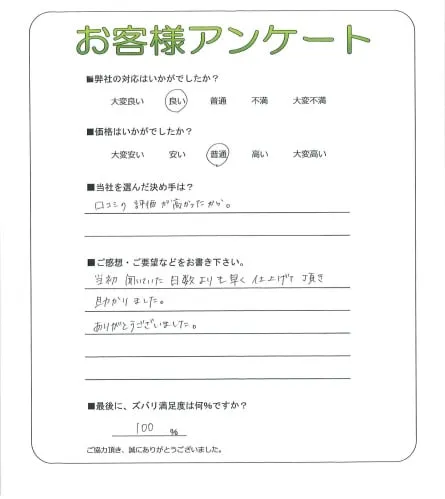 お客様アンケート
■弊社の対応はいかがでしたか？
大変良い 良い 普通 不満 大変不満
■価格はいかがでしたか？
大変安い 安い 普通 高い 大変高い
■当社を選んだ決め手は？
口コミの評価が高かったから。
■ご感想・ご要望などをお書き下さい。
当初聞いていた日数よりも早く仕上げて頂き
助かりました。
ありがとうございました。
■最後に、ズバリ満足度は何％ですか？
100 %
ご協力頂き、誠にありがとうございました。